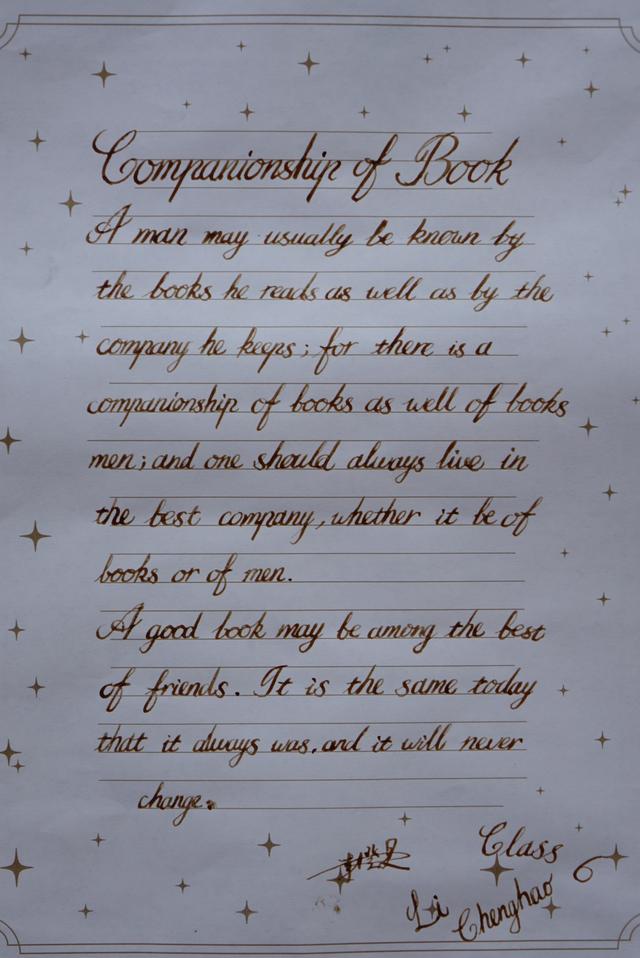 Companionship of Book
A man may usually be known by
the books he reads as well as by the
company he keeps; for there is a
companionship of books as well of books
men; and one should always live in
the best company, whether it be of
books or of men.
A good book may be among the best
of friends. It is the same today
that it always was, and it will never
change.
Class 6
Li Chenghao